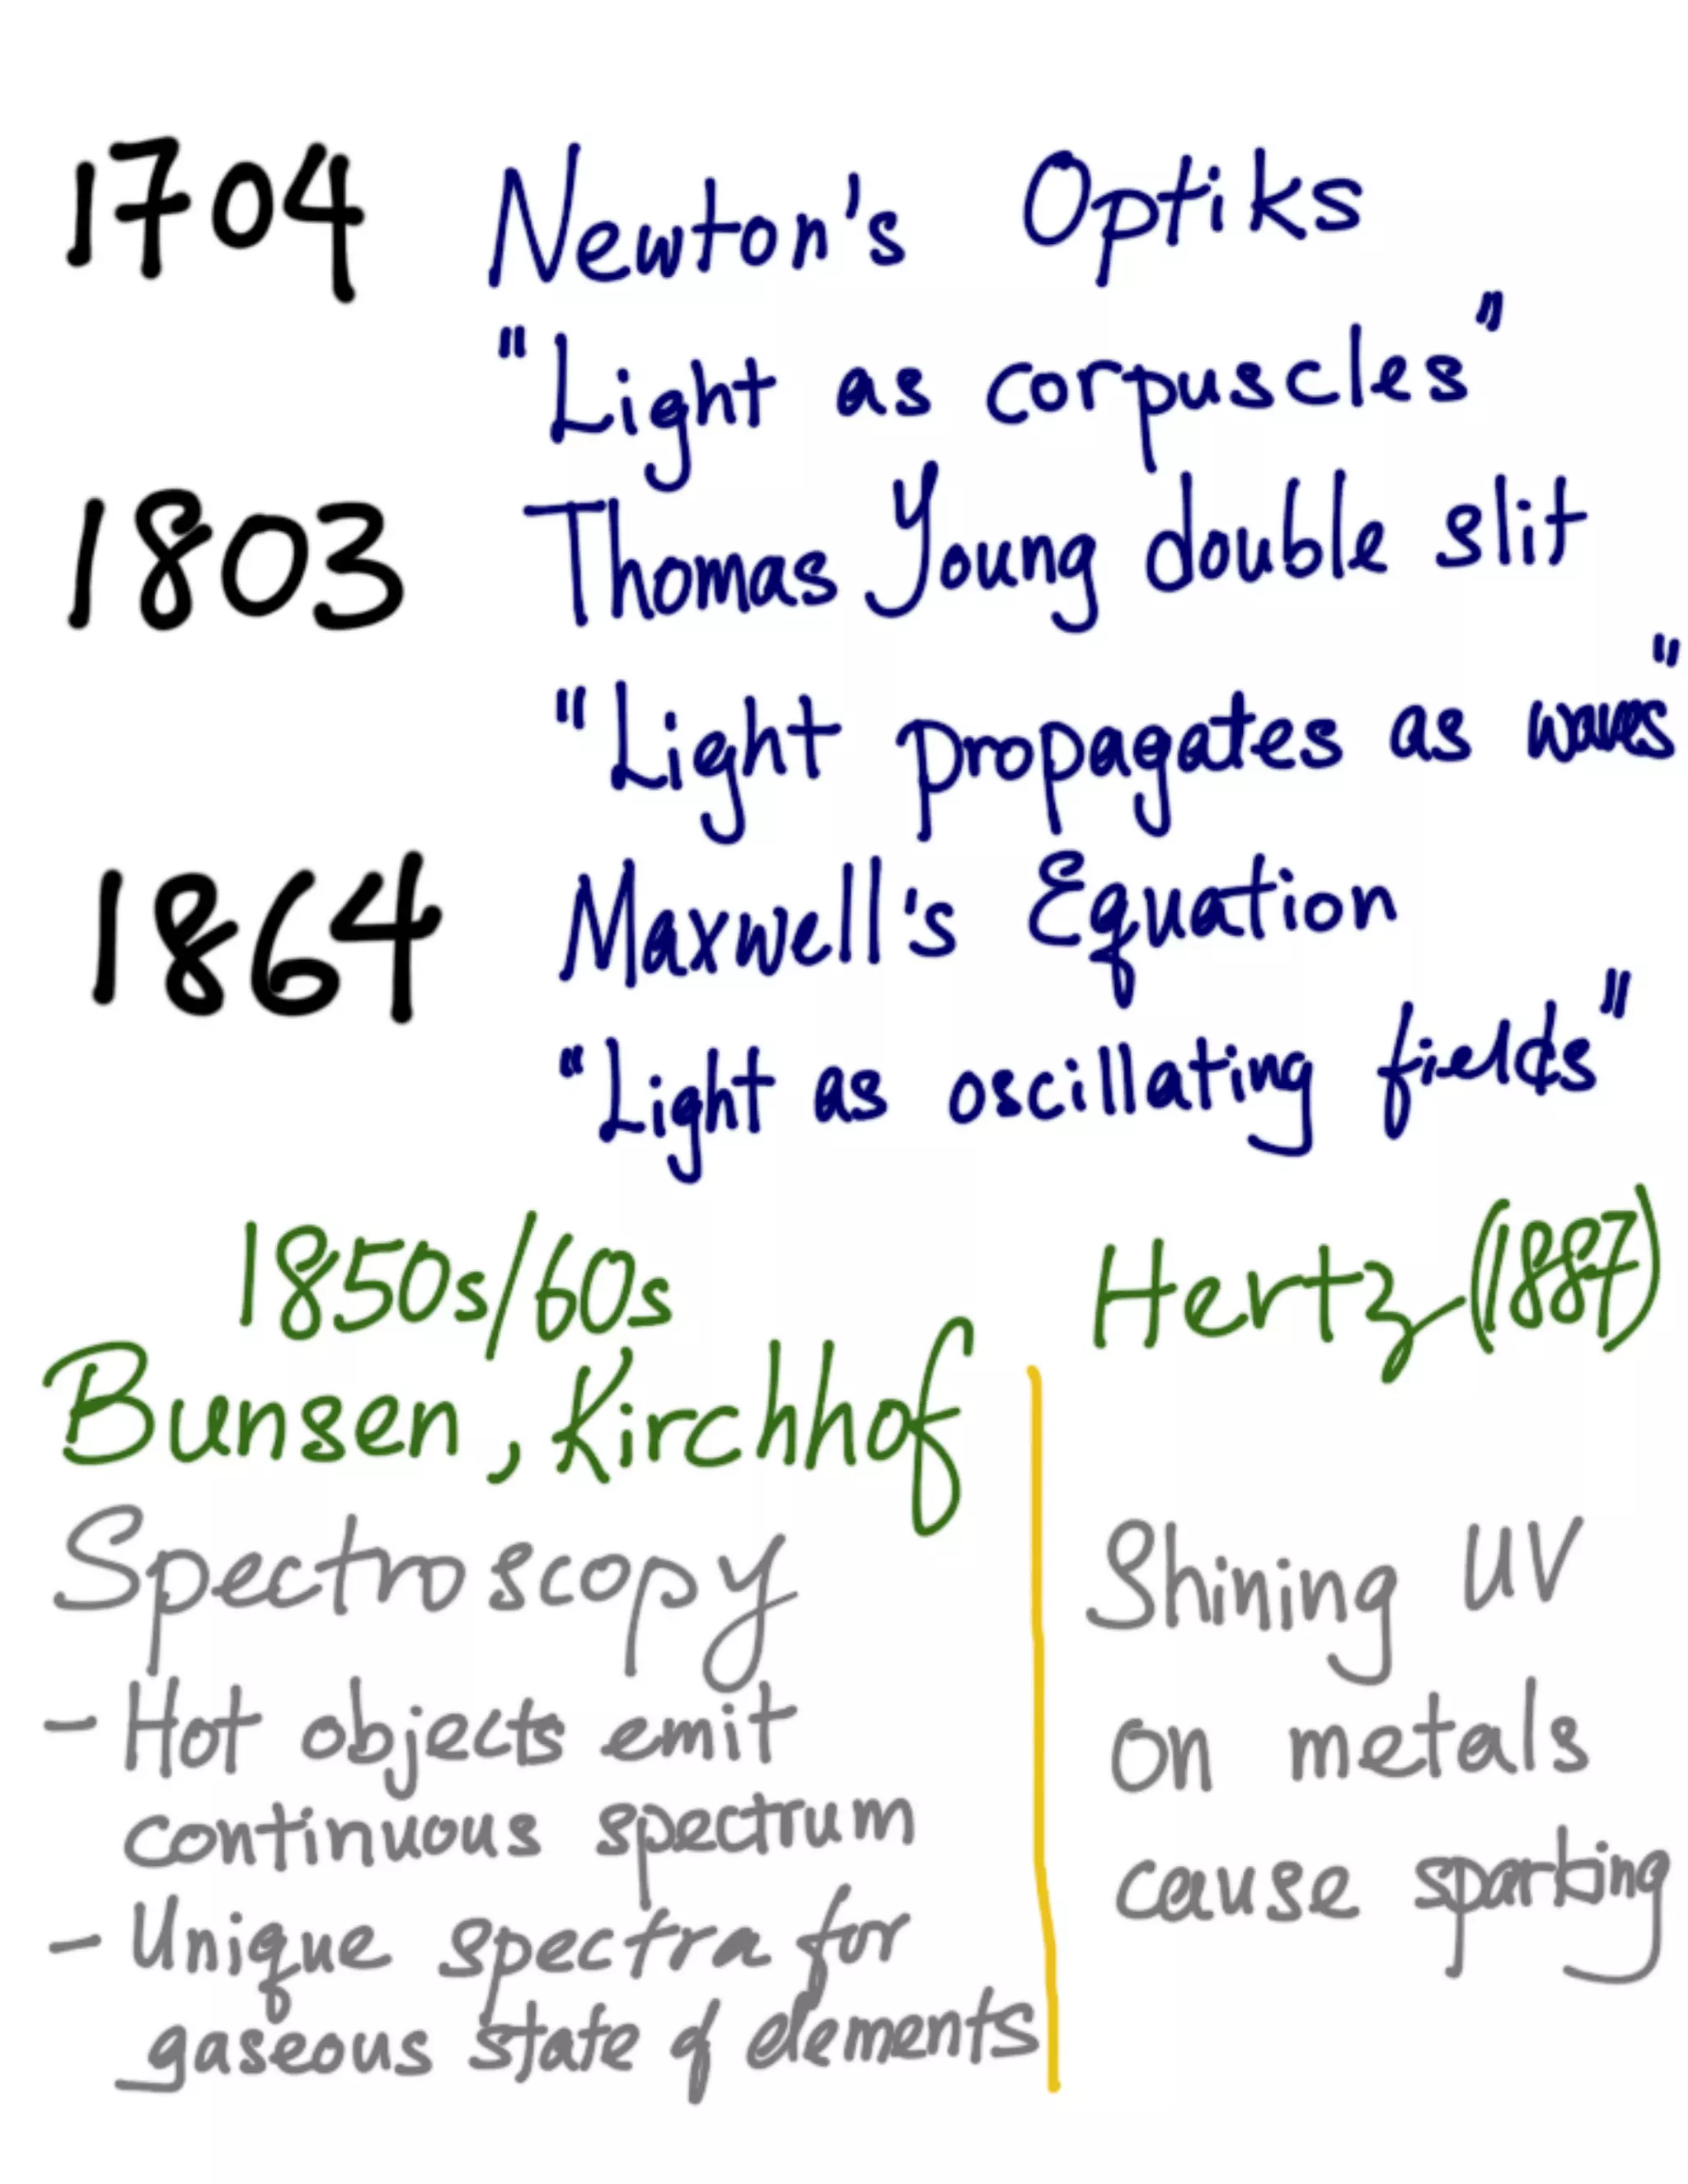 1704 Newton's Optiks
"Light as corpuscles"
1803 Thomas Young double slit
"Light propagates as waves"
1864 Maxwell's Equation
"Light as oscillating fields"
1850s/60s
Bunsen, Kirchhof
Spectroscopy
- Hot objects emit
continuous spectrum
- Unique spectra for
gaseous state of elements
Hertz (1887)
Shining UV
on metals
cause sparking